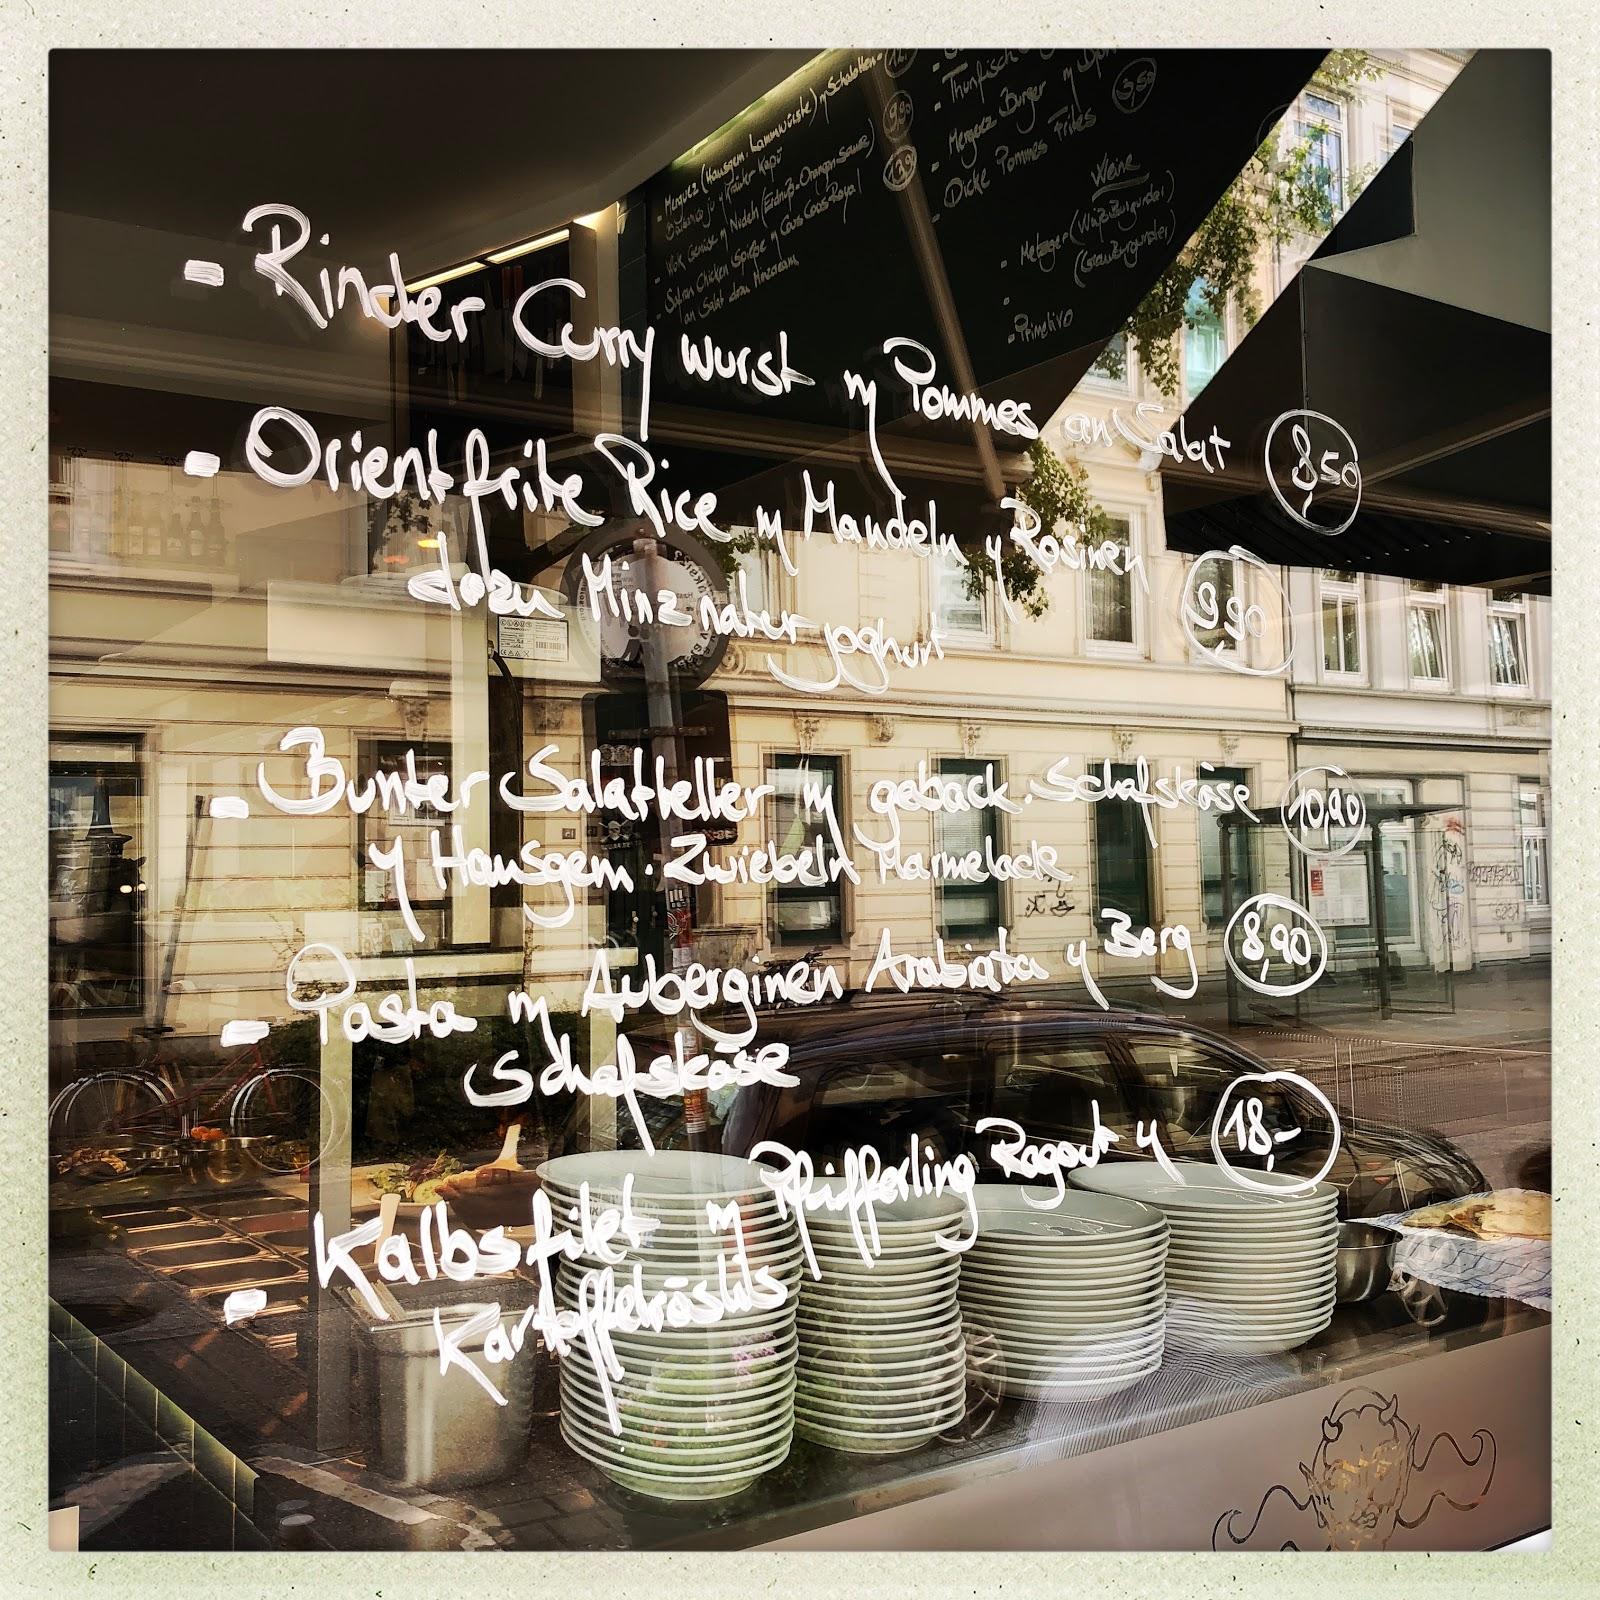 - Rinder Curry wurst m Pommes an Salat 8,50
- Orient frite Rice m Mandeln y Rosinen
dazu Minz natur joghurt 9,90
- Bunter Salatteller m geback. Schafskäse 10,90
y Hausgem. Zwiebeln Marmelade
- Pasta m Auberginen Arabiata y Berg 8,90
Schafskäse
- Kalbsfilet m Pfifferling Ragout y 18,-
Kartoffelröstis
- Merguez (Hausgem. Lammwürste) m Schalotten-
9,90
- Wok Gemüse m Nudeln (Erdnuß-Orangen Sauce)
- Safran Chicken Spieße m Cous Cous Royal
an Salat dazu Minzcream
13,90
- Thunfisch
- Merguez Burger m
- Dicke Pommes Frites 3,50
Weine
- Metzger (Weißburgunder)
(Grauburgunder)
- Primitivo